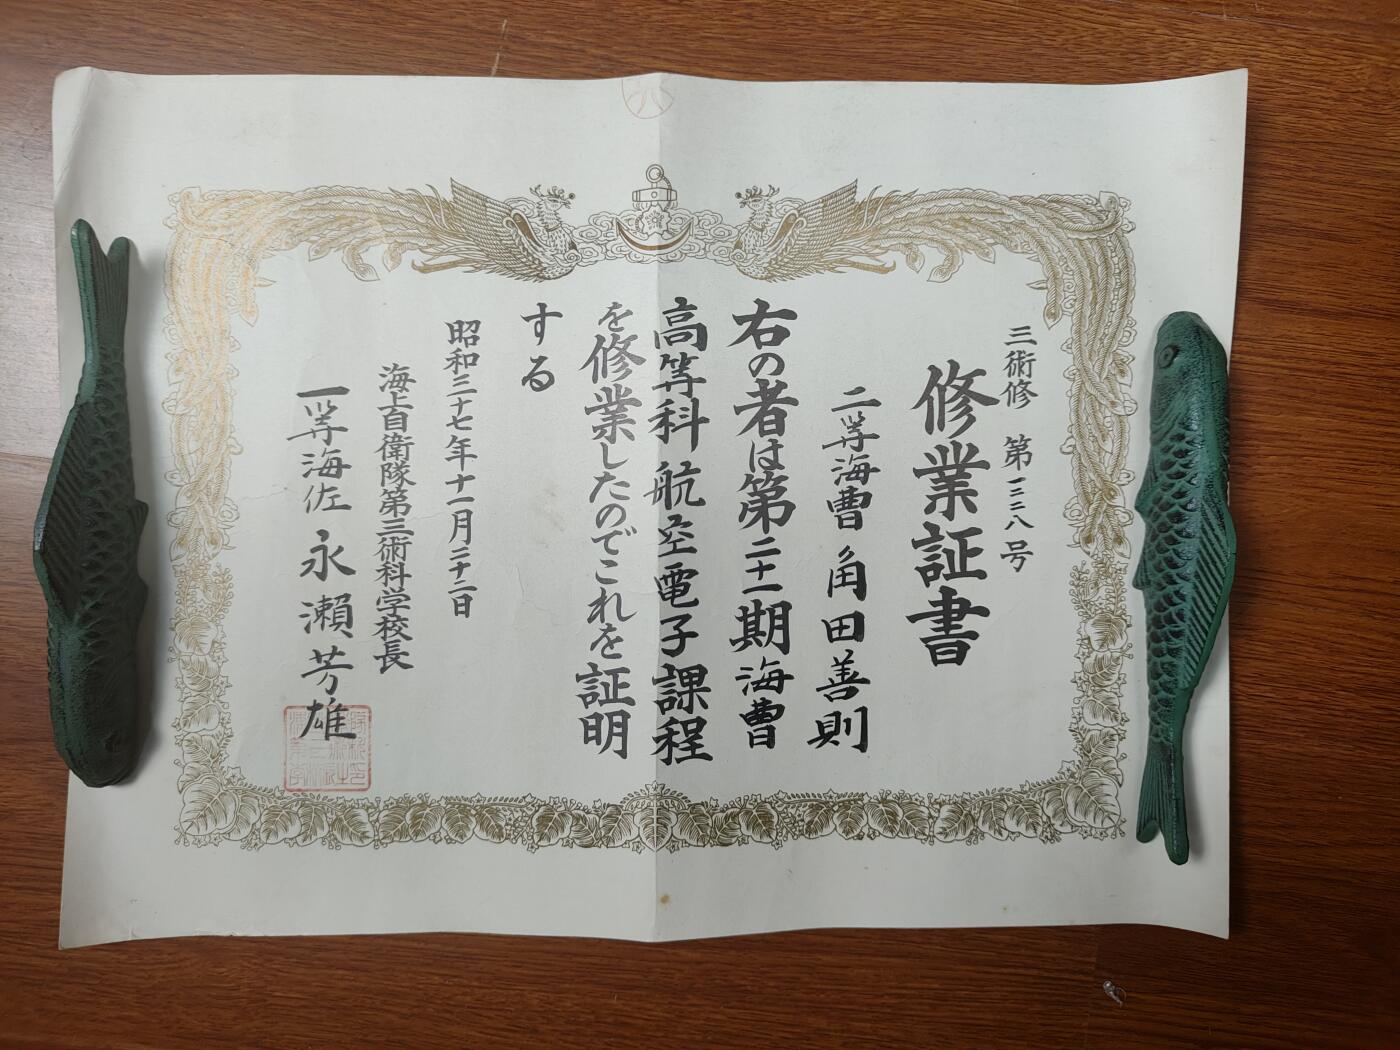 三術修 第一三三八号
修業証書
二等海曹 角田善則
右の者は第二十一期海曹
高等科航空電子課程
を修業したのでこれを証明
する
昭和三十七年十一月二十二日
海上自衛隊第三術科学校長
一等海佐 永瀬芳雄